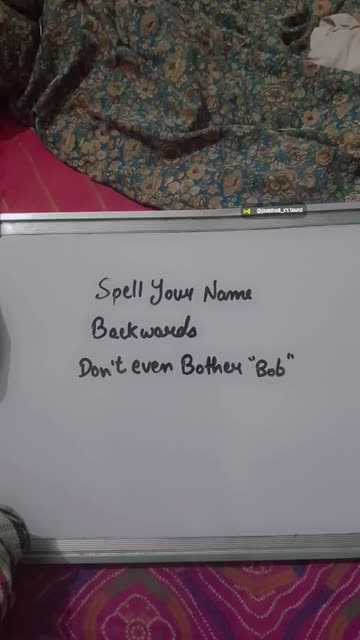 Spell Your Name
Backwards
Don't even Bother "Bob"